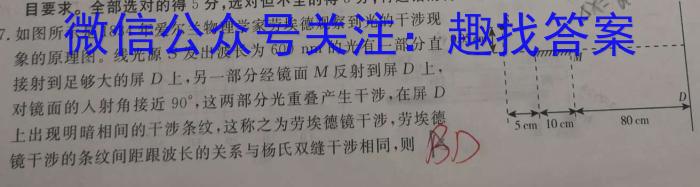 目要求。全部选对的得5分,选对但不全的得
7. 如图所 观察到光的干涉现
微信公众号关注：趣找答案
象的原理图。线光源S发出波长为600 nm的光有一部分直
接射到足够大的屏D上,另一部分经镜面M反射到屏D上,
对镜面的入射角接近90°,这两部分光重叠产生干涉,在屏D
上出现明暗相间的干涉条纹,这称之为劳埃德镜干涉,劳埃德
镜干涉的条纹间距跟波长的关系与杨氏双缝干涉相同,则
BD
M
D
5 cm 10 cm 80 cm